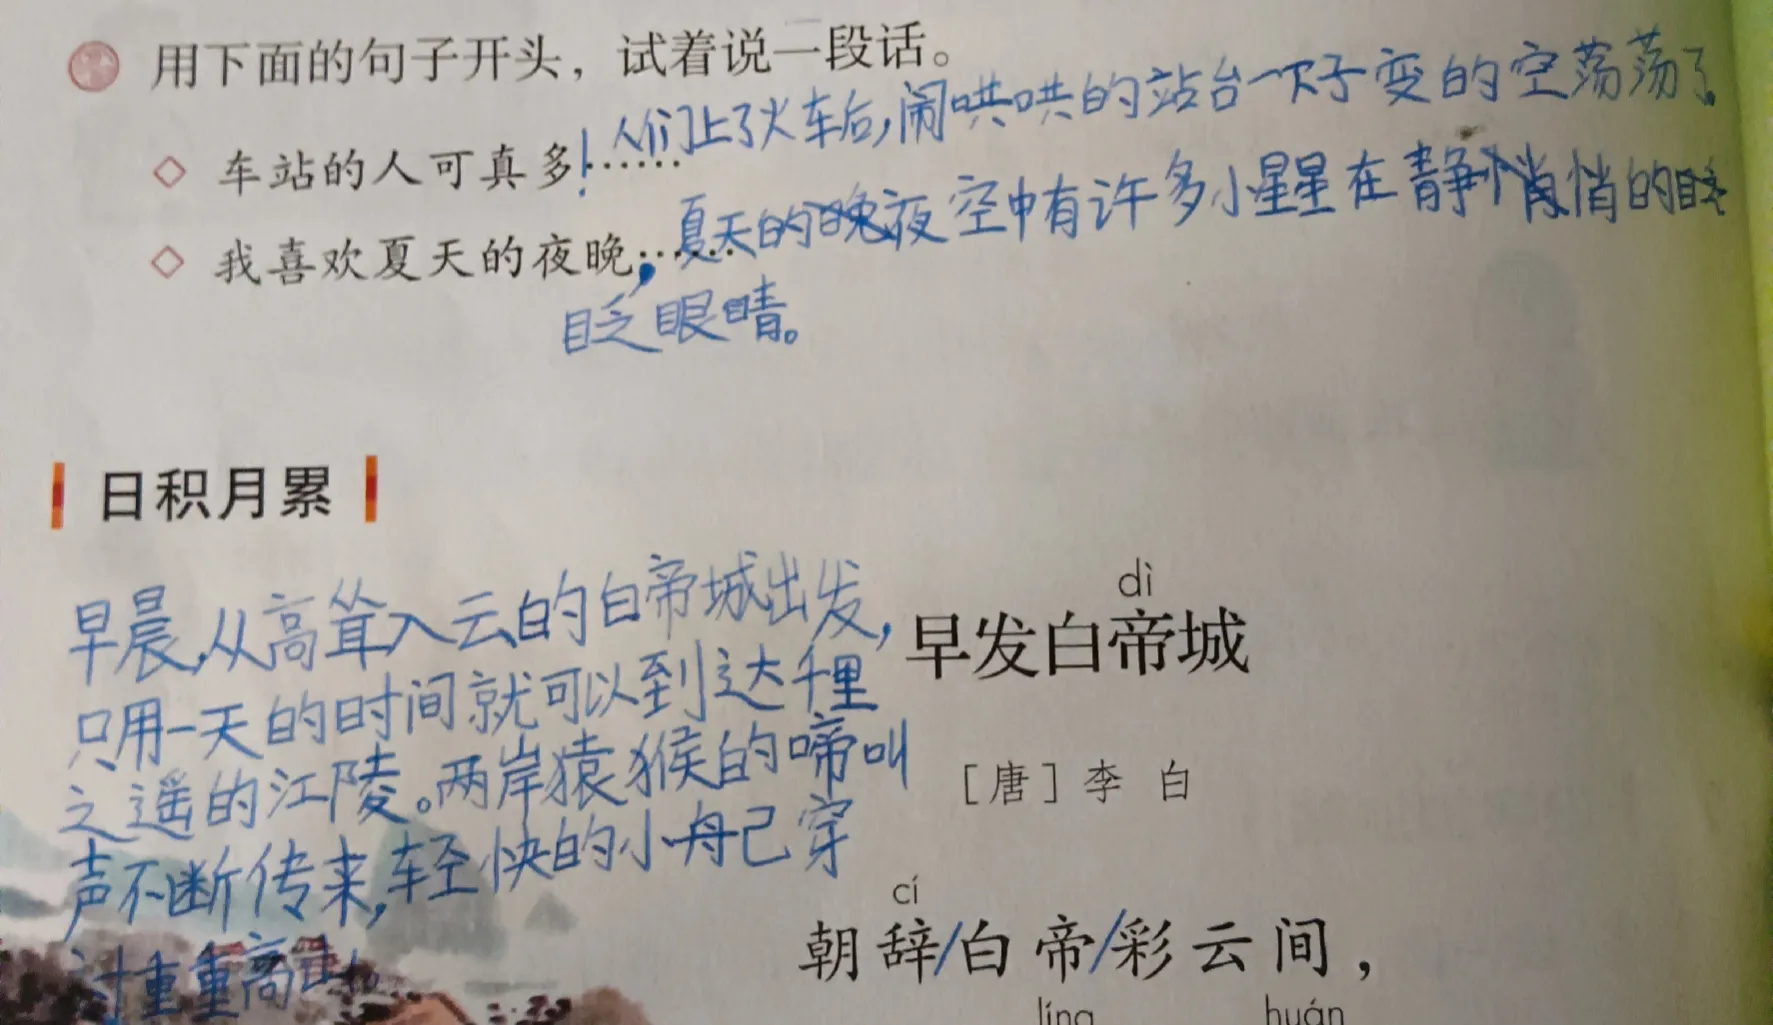 用下面的句子开头，试着说一段话。
◇ 车站的人可真多！……人们上了火车后,闹哄哄的站台一下子变的空荡荡了。
◇ 我喜欢夏天的夜晚，……夏天的晚夜空中有许多小星星在静悄悄的眨
眨眼睛。
日积月累
早晨,从高耸入云的白帝城出发,
只用一天的时间就可以到达千里
之遥的江陵。两岸猿猴的啼叫
声不断传来,轻快的小舟已穿
过重重高山。
dì
早发白帝城
［唐］李 白
cí
朝辞/白帝/彩云间，
líng huán